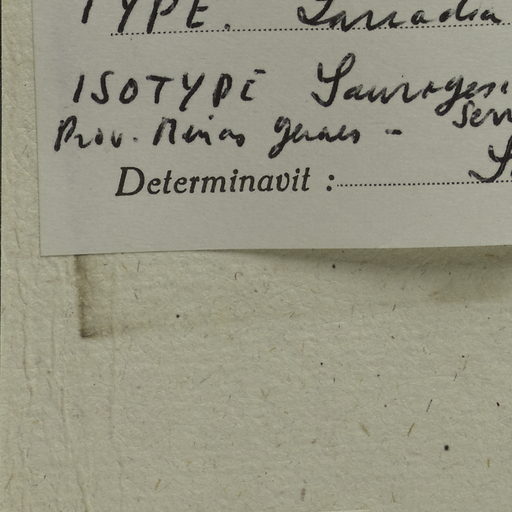 TYPE. Larradia
ISOTYPE Sauvagesi
Serr
Prov. Minas Geraes -
Determinavit :